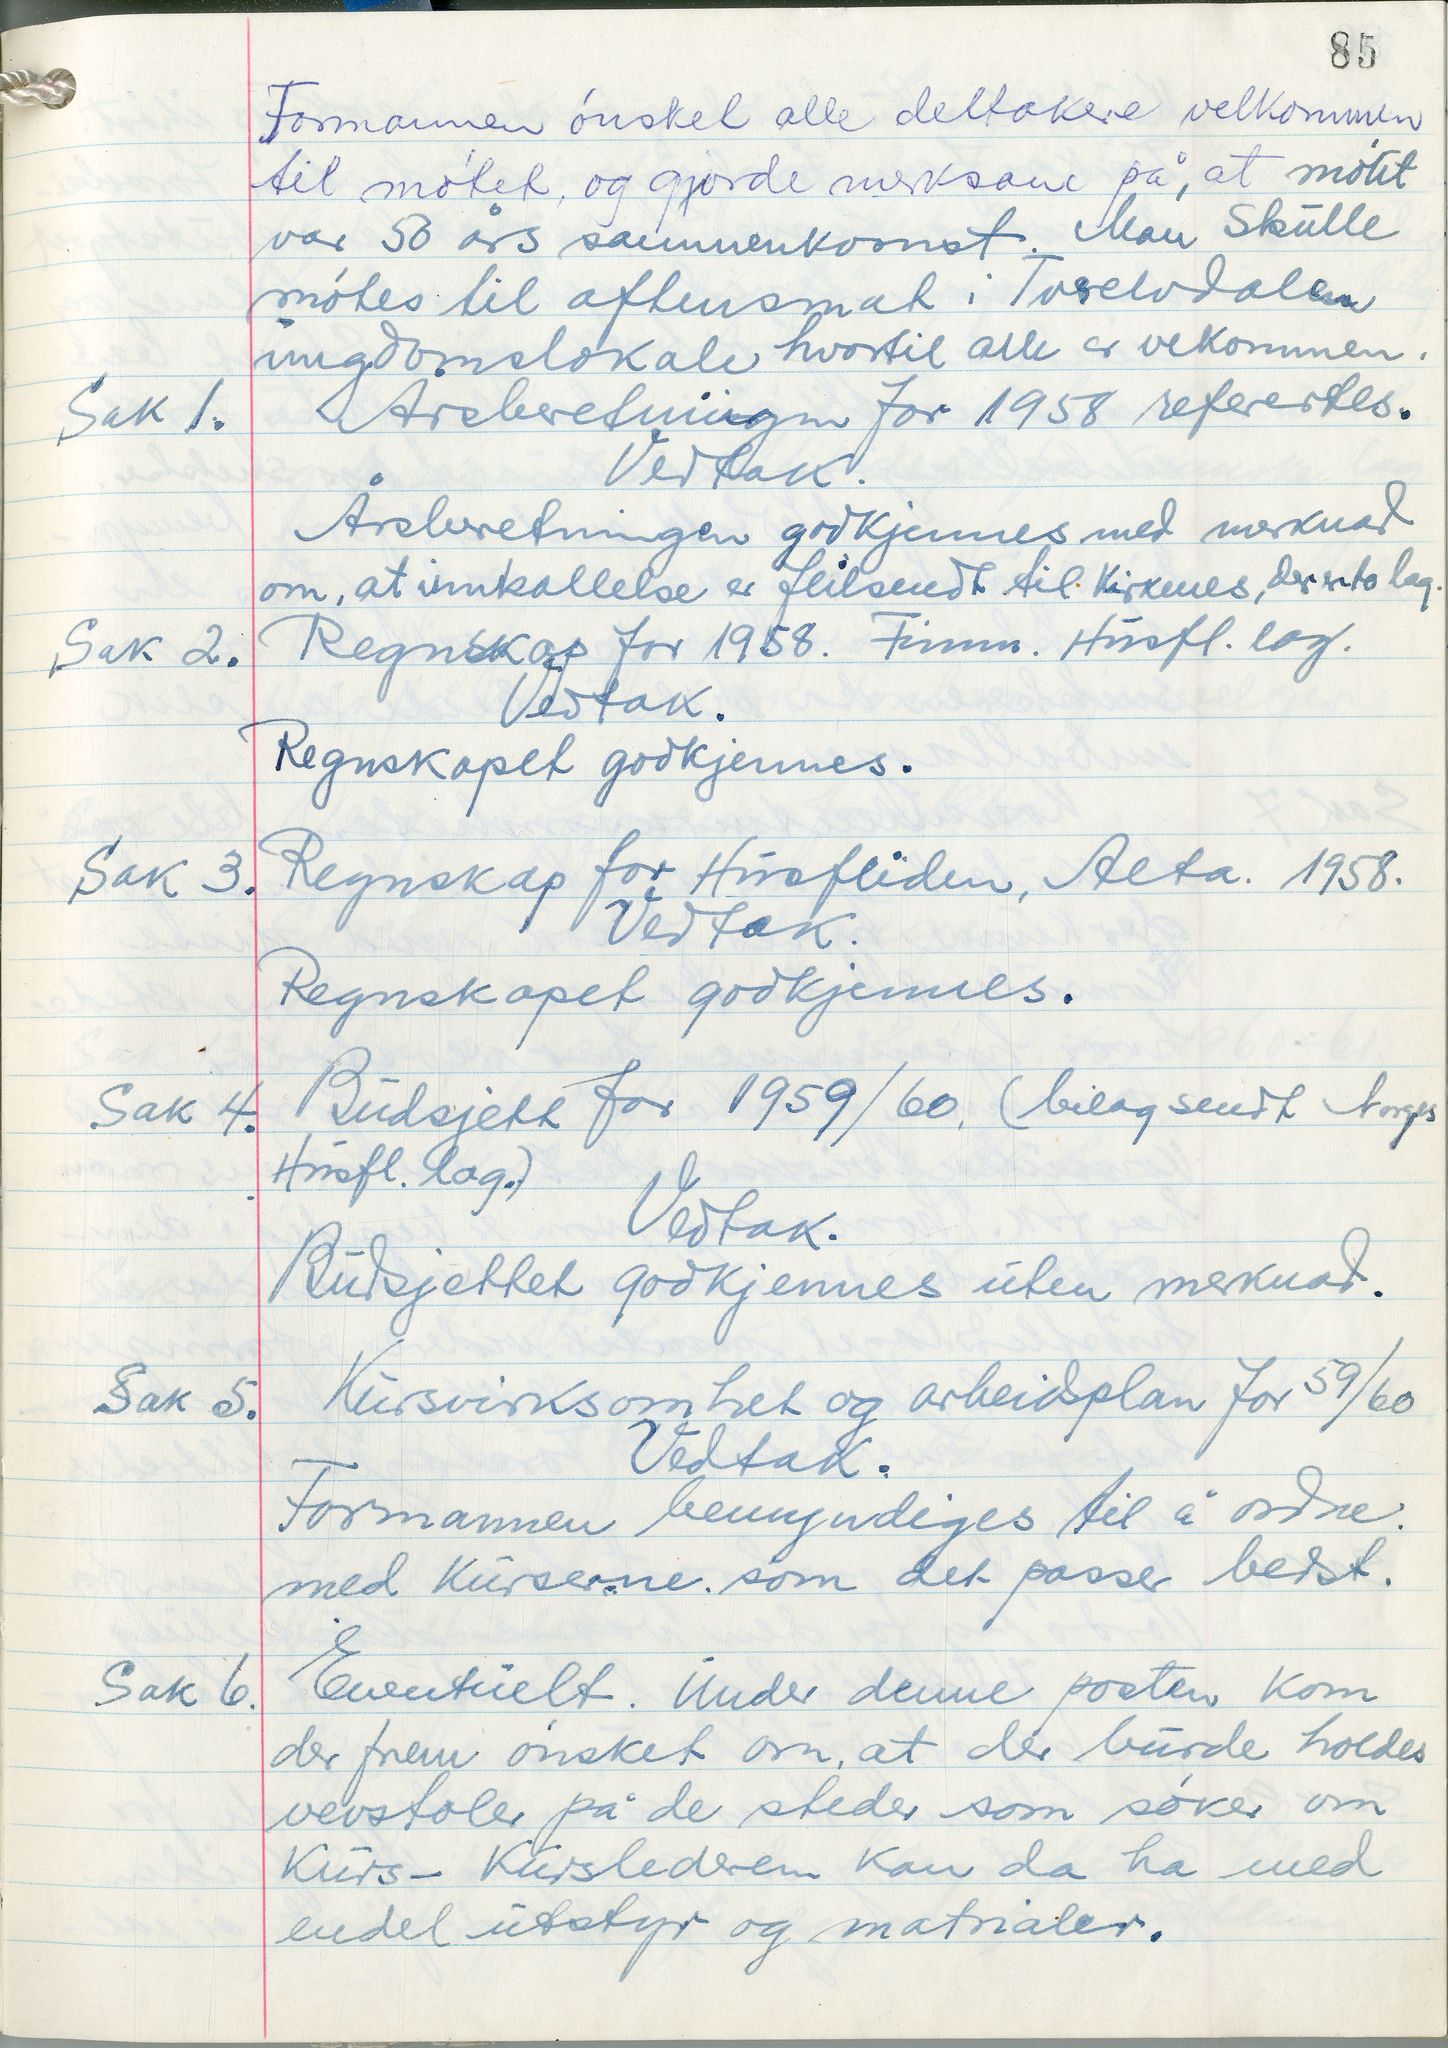 85
Formannen ónsket alle deltakere velkommen
til mótet, og gjorde merksam på, at mótet
var 50 års sammenkomst. Man Skulle
mótes til aftensmat i Tverelvdalen
ungdomslokale hvortil alle er vekommen.
Sak 1. Årsberetningen for 1958 referertes.
Vedtak.
Årsberetningen godkjennes med merknad
om, at innkallelse er feilsendt til Kirkenes, der er to lag.
Sak 2. Regnskap for 1958. Finnm. Husfl. lag.
Vedtak.
Regnskapet godkjennes.
Sak 3. Regnskap for Husfliden, Alta. 1958.
Vedtak.
Regnskapet godkjennes.
Sak 4. Budsjett for 1959/60. (bilag sendt Norges
Husfl. lag.)
Vedtak.
Budsjettet godkjennes uten merknad.
Sak 5. Kursvirksomhet og arbeidsplan for 59/60
Vedtak.
Formannen bemyndiges til å ordne
med Kurserne som det passer bedst.
Sak 6. Eventuelt. Under denne posten kom
der frem ónsket om, at der burde holdes
vevstoler på de steder som sóker om
Kurs - Kurslederen kan da ha med
endel utstyr og matrialer.